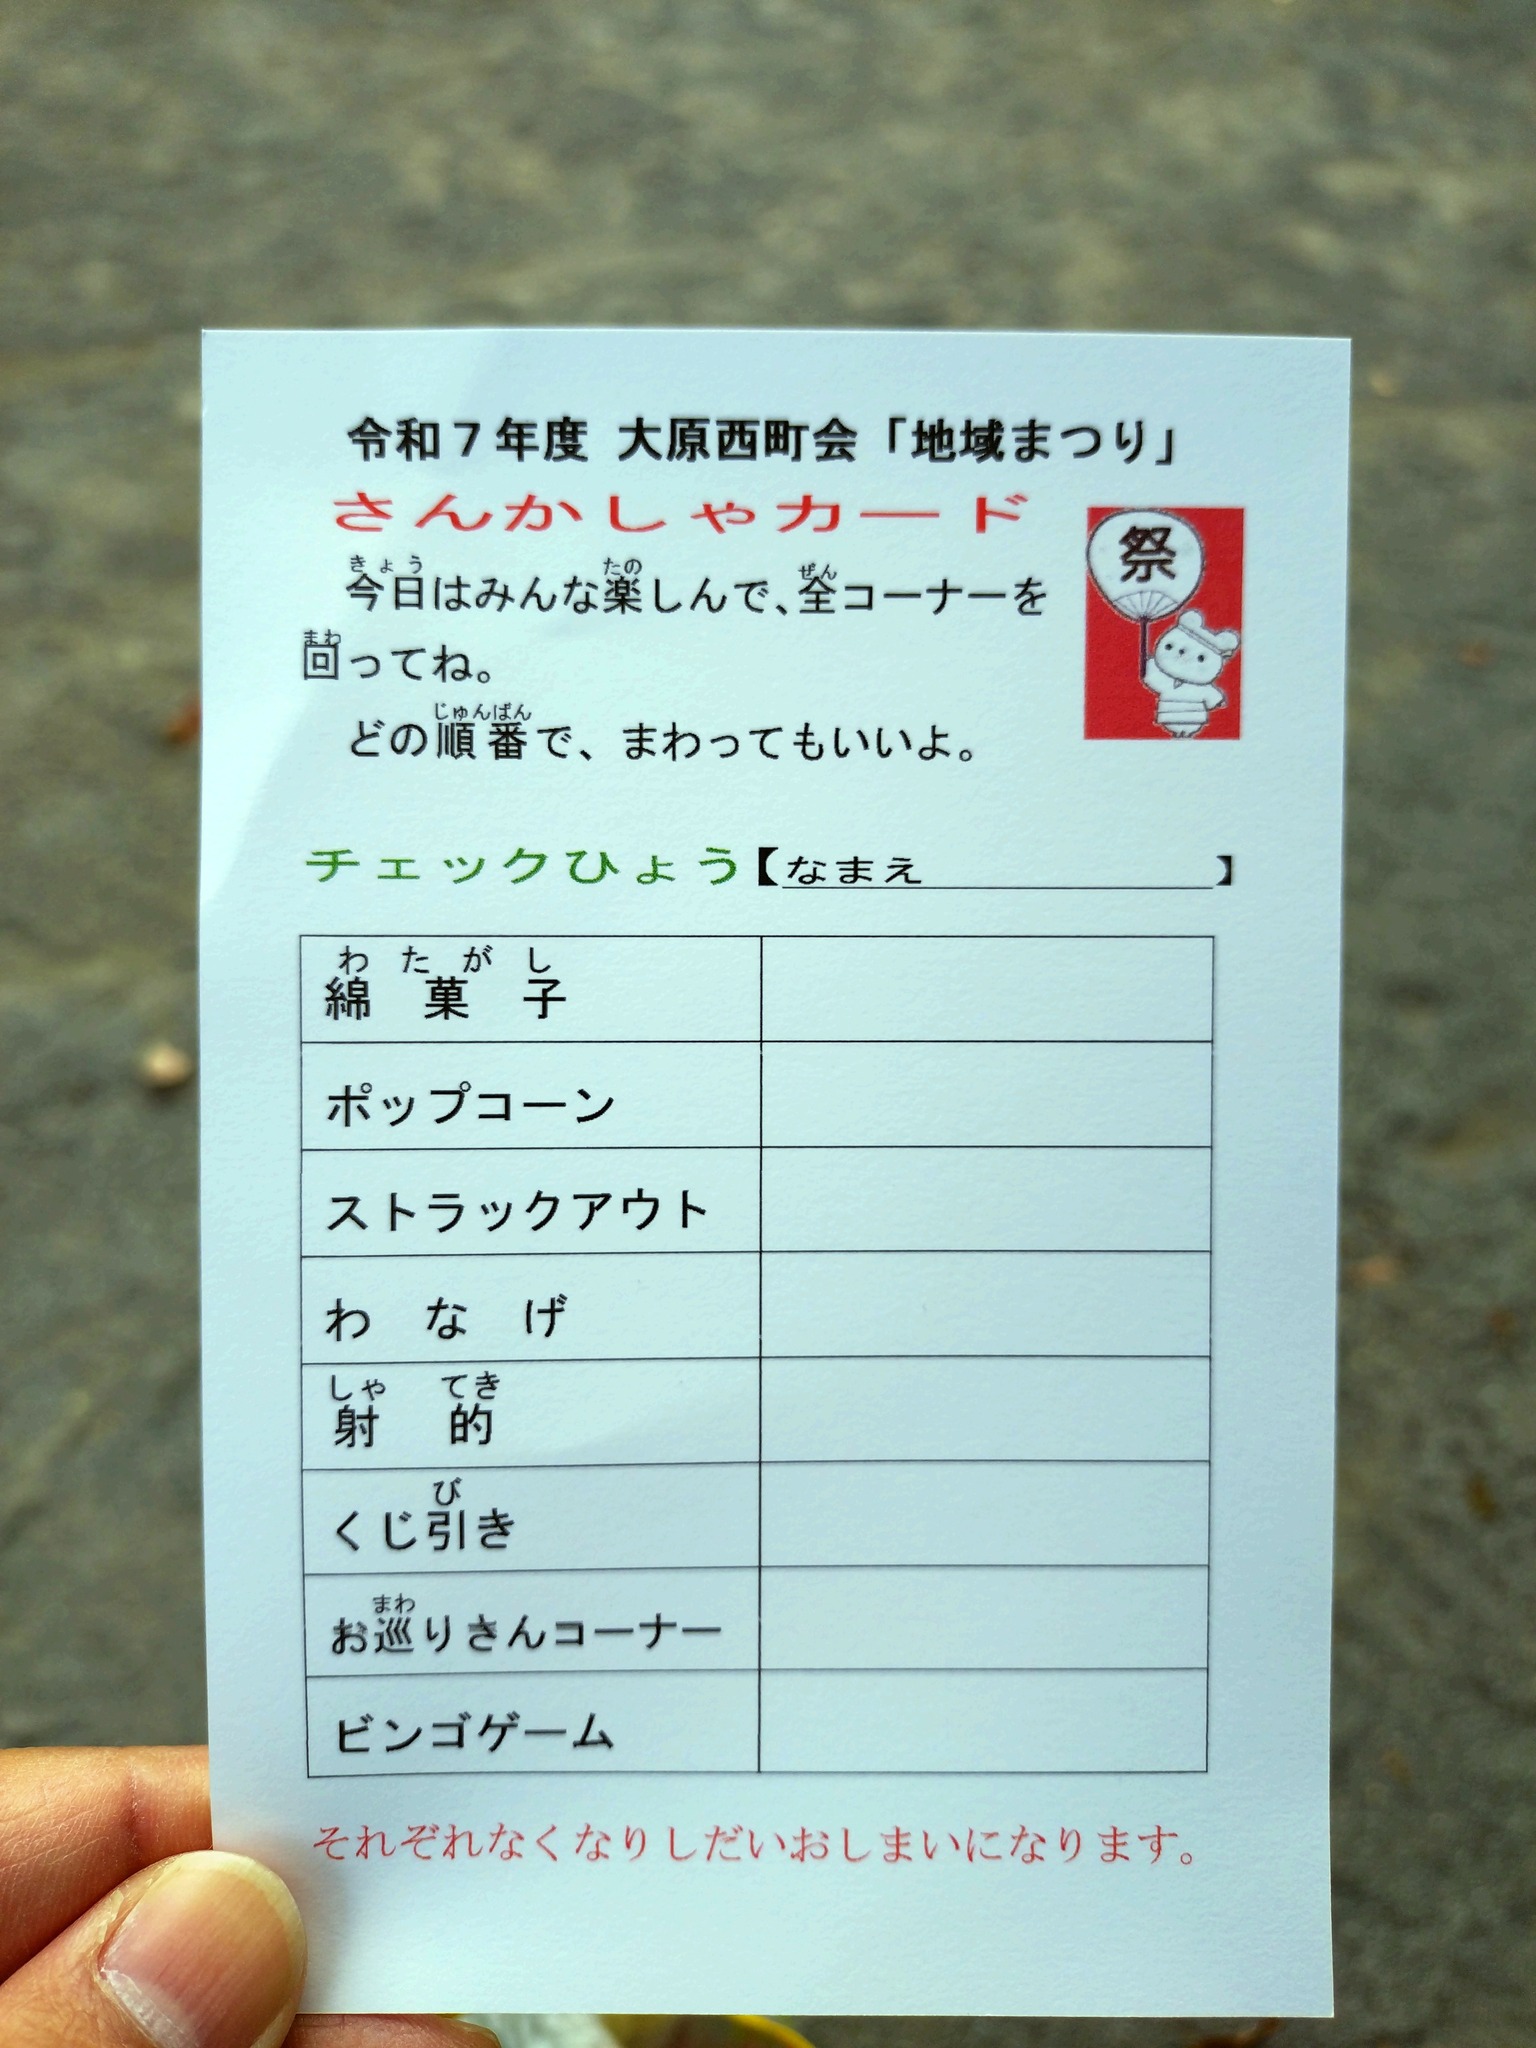 令和７年度 大原西町会「地域まつり」
さんかしゃカード
祭
今日はみんな楽しんで、全コーナーを
きょう たの ぜん
回ってね。
まわ
どの順番で、まわってもいいよ。
じゅんばん
チェックひょう【なまえ 】
わたがし
綿菓子
ポップコーン
ストラックアウト
わなげ
しゃてき
射的
び
くじ引き
まわ
お巡りさんコーナー
ビンゴゲーム
それぞれなくなりしだいおしまいになります。